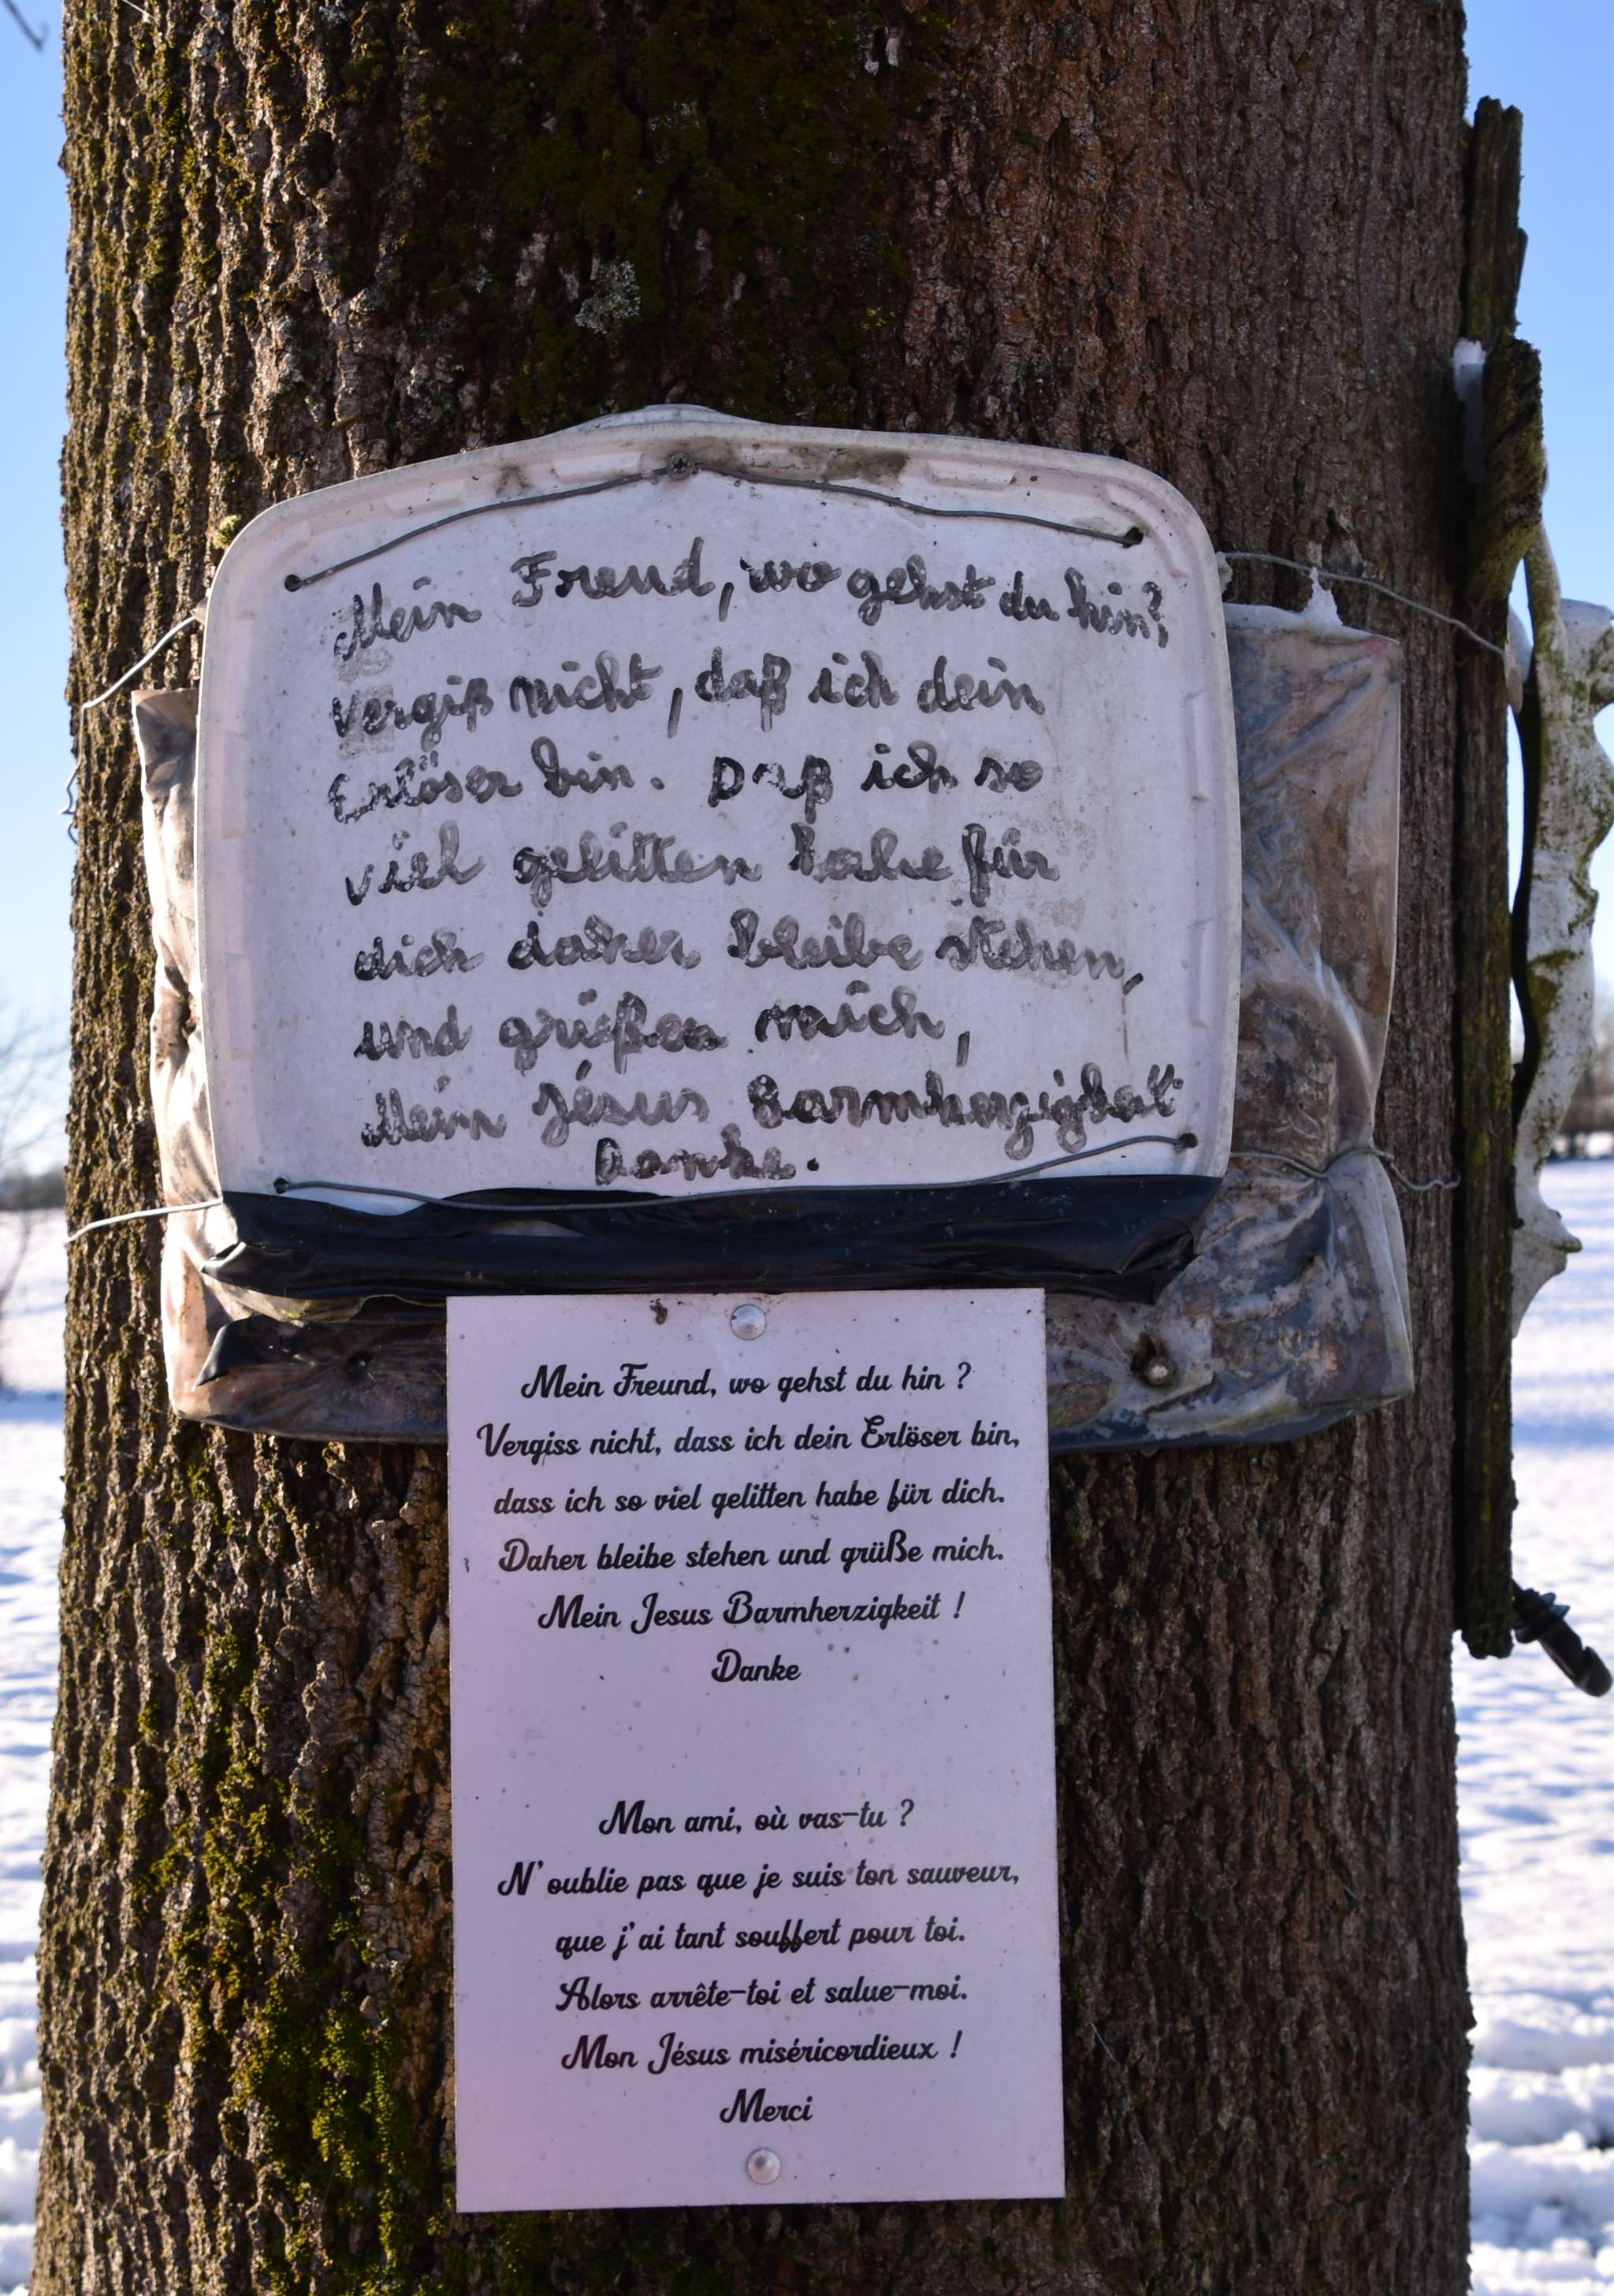 Mein Freud, wo gehst du hin?
vergiß nicht, daß ich dein
Erlöser bin. Daß ich so
viel gelitten habe für
dich daher bleibe stehen,
und grüßen mich,
Mein Jésus Barmherzigkeit
Danke.
Mein Freund, wo gehst du hin ?
Vergiss nicht, dass ich dein Erlöser bin,
dass ich so viel gelitten habe für dich.
Daher bleibe stehen und grüße mich.
Mein Jesus Barmherzigkeit !
Danke
Mon ami, où vas-tu ?
N' oublie pas que je suis ton sauveur,
que j' ai tant souffert pour toi.
Alors arrête-toi et salue-moi.
Mon Jésus miséricordieux !
Merci